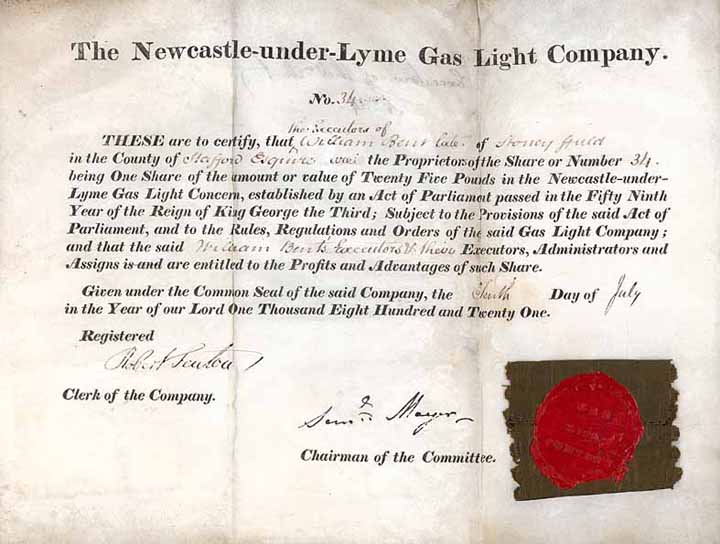 The Newcastle-under-Lyme Gas Light Company.
No. 34
the Executors of
THESE are to certify, that William Bent late of Stoney field
in the County of Stafford Esquire were the Proprietors of the Share or Number 34.
being One Share of the amount or value of Twenty Five Pounds in the Newcastle-under-
Lyme Gas Light Concern, established by an Act of Parliament passed in the Fifty Ninth
Year of the Reign of King George the Third; Subject to the Provisions of the said Act of
Parliament, and to the Rules, Regulations and Orders of the said Gas Light Company;
and that the said William Bent's Executors & their Executors, Administrators and
Assigns is and are entitled to the Profits and Advantages of such Share.
Given under the Common Seal of the said Company, the Tenth Day of July
in the Year of our Lord One Thousand Eight Hundred and Twenty One.
Registered
Robert Fenton
Clerk of the Company.
Saml. Mayer
Chairman of the Committee.